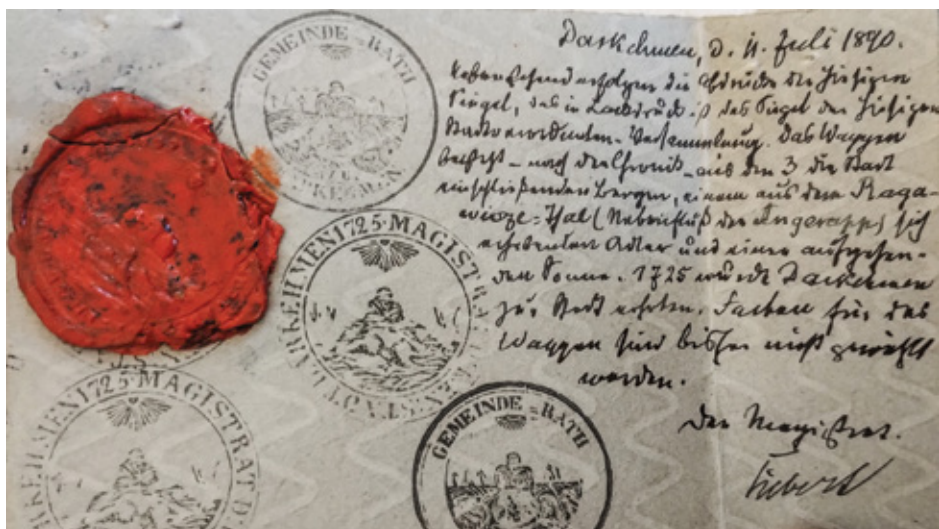 GEMEINDE = RATH
MAGISTRAT
1725
GEMEINDE = RATH
Darkehmen, d. 11. Juli 1890.
Nebenstehend erfolgen die Abdrücke der hiesigen
Siegel, das in Lackdruck ist das Siegel der hiesigen
Stadtverordneten-Versammlung. Das Wappen
besteht – nach der Chronik – aus den 3 die Stadt
einschließenden Bergen, einem aus dem Raga-
wisze-Thal (Nebenfluß der Angerapp) sich
erhebenden Adler und einer aufgehen-
den Sonne. 1725 wurde Darkehmen
zur Stadt erhoben. Farben für das
Wappen sind bisher nicht gewählt
worden.
Der Magistrat.